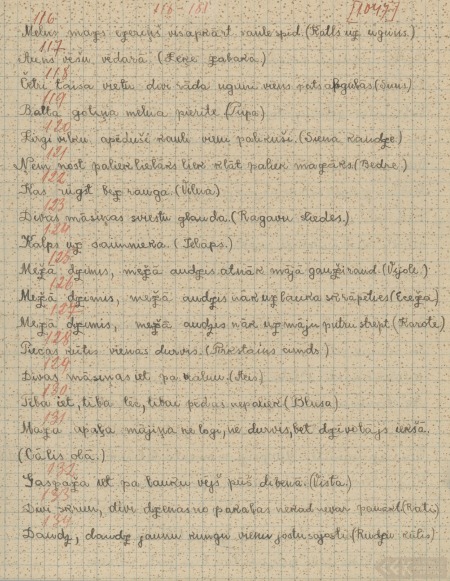 116 - 181 [1047]
116
Melns mazs ezeriņš visapkārt saule spīd. (Katls uz uguns.)
117
Auns vēršu vēdarā (Zeķe zābakā.)
118
Četri taisa vietu divi rāda uguni viens pats apgulās (Suns)
119
Balta gotiņa melna pierīte (Pupa)
120
Zirgi vilku apēduši kauli vien palikuši. (Siena kaudze.)
121
Ņem nost paliek lielāks liek klāt paliek mazāks (Bedre.)
122
Kas rūgst bez rauga. (Vilna)
123
Divas māsiņas sviestu glauda. (Ragavu sliedes.)
124
Kalps uz saimnieka. (Jelāps.)
125
Mežā dzimis, mežā audzis atnāk mājā gauži raud. (Vijole.)
126
Mežā dzimis, mežā audzis nāk uz lauka skrāpēties (Ecēža)
127
Mežā dzimis, mežā audzis nāk uz māju putru strept (Karote)
128
Piecas kūtis vienas durvis. (Pirkstains cimds.)
129
Divas māsiņas iet pa kalnu. (Acis)
130
Tiba iet, tiba tec, tibai pēdas nepaliek (Blusa)
131
Maza apaļa mājiņa ne logi, ne durvis, bet dzīvotājs iekšā.
(Cālis olā.)
132
Gaspaža iet pa lauku vējš pūš dibenā. (Vista.)
133
Divi skrien, divi dzenas no pakaļas nekad nevar panākt (Rati)
134
Daudz, daudz jaunu kungu vienu jostu sajosti (Rudzu kūlis)